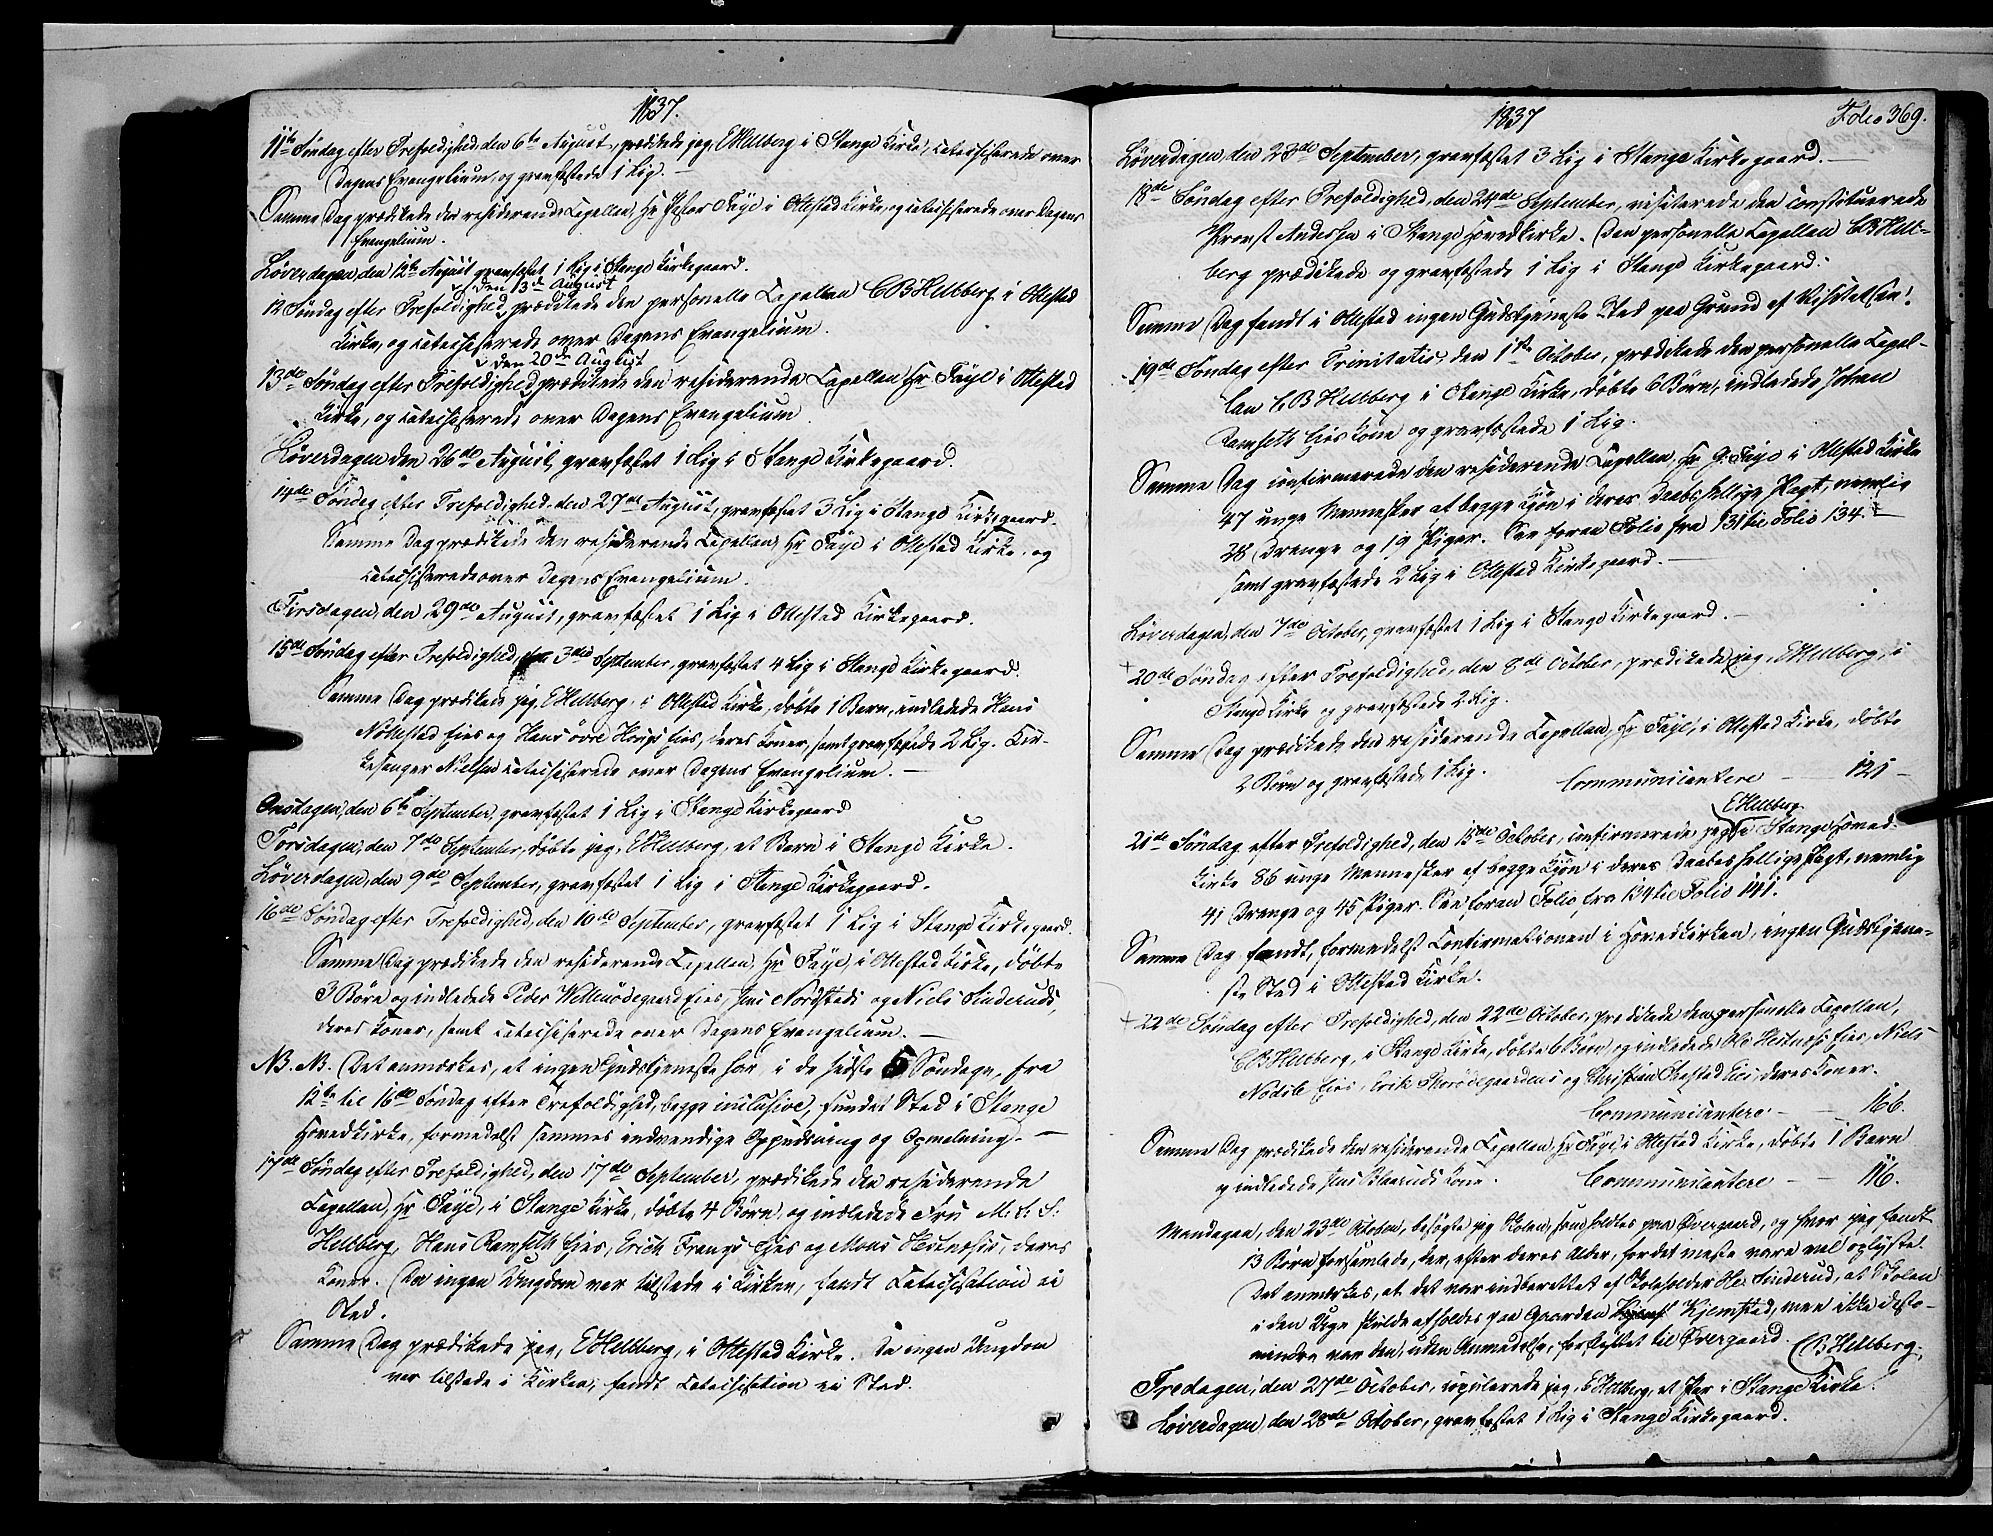 1837.
11te Søndag efter Trefoldighed, den 6te August, prædikede jeg, EHellberg i Stange Kirke, catechiserede over
Dagens Evangelium, og gravfæstede 1 Lig. —
Samme Dag prædikede den residerende Capellan, Hr Pastor Faye i Ottestad Kirke, og catechiserede over Dagens
Evangelium.
Løverdagen, den 12te August gravfæstet 1 Lig i Stange Kirkegaard.
den 13de August
12 Søndag efter Trefoldighed, prædikede den personelle Capellan CBHellberg i Ottestad
Kirke, og catechiserede over Dagens Evangelium.
den 20de August
13de Søndag efter Trefoldighed prædikede den residerende Capellan Hr Faye i Ottestad
Kirke, og catechiserede over Dagens Evangelium.
Løverdagen den 26de August, gravfæstet 1 Lig i Stange Kirkegaard.
14de Søndag efter Trefoldighed, den 27de August, gravfæstet 3 Lig i Stange Kirkegaard.
Samme Dag prædikede den residerende Capellan, Hr Faye i Ottestad Kirke, og
catechiserede over Dagens Evangelium.
Tirsdagen, den 29de August, gravfæstet 1 Lig i Ottestad Kirkegaard.
15de Søndag efter Trefoldighed, den 3die September, gravfæstet 4 Lig i Stange Kirkegaard.
Samme Dag prædikede jeg, EHellberg, i Ottestad Kirke, døbte 1 Barn, indledede Hans
Nottestad Eies og Hans øvre Hougs Eies, deres Koner, samt gravfæstede 2 Lig. Kir-
kesanger Nielsen catechiserede over Dagens Evangelium. —
Onsdagen, den 6te September, gravfæstet 1 Lig i Stange Kirkegaard
Torsdagen, den 7de September, døbte jeg, EHellberg, et Barn i Stange Kirke.
Løverdagen, den 9de September, gravfæstet 1 Lig i Stange Kirkegaard.
16de Søndag efter Trefoldighed, den 10de September, gravfæstet 1 Lig i Stange Kirkegaard.
Samme Dag prædikede den residerende Capellan, Hr Faye, i Ottestad Kirke, døbte
3 Børn og indledede Peder Eies, Jens Nordstads og Niels Sinderuds,
deres Koner, samt catechiserede over Dagens Evangelium. —
NB. NB. Det anmærkes, at ingen Gudstjeneste har i de sidste 5 Søndage, fra
12te til 16de Søndag efter Trefoldighed, begge inclusive, fundet Sted i Stange
Hovedkirke, formedelst sammes indvendige Oppudsning og Opmaling. —
17de Søndag efter Trefoldighed, den 17de September, prædikede den residerende
Capellan, Hr Faye, i Stange Kirke, døbte 4 Børn, og indledede Fru M. S.
Hellberg, Hans Ramseth Eies, Erich Frangs Eies og Mons Hestnæsis, deres
Koner. Da ingen Ungdom var tilstede i Kirken, fandt Catechisation ei
Sted.
Samme Dag prædikede jeg, EHellberg, i Ottestad Kirke. Da ingen Ungdom
var tilstede i Kirken, fandt Catechisation ei Sted.
1837
Folio 369.
Løverdagen, den 23de September, gravfæstet 3 Lig i Stange Kirkegaard. —
18de Søndag efter Trefoldighed, den 24de September, visiterede den constituerede
Provst Andersen i Stange Hovedkirke. Den personelle Capellan CBHell-
berg prædikede og gravfæstede 1 Lig i Stange Kirkegaard.
Samme Dag fandt i Ottestad ingen Gudstjeneste Sted paa Grund af Visitatsen.
19de Søndag efter Trinitatis, den 1ste October, prædikede den personelle Capel-
lan CBHellberg i Stange Kirke, døbte 6 Børn, indledede Johan
Ramseth Eies Kone og gravfæstede 1 Lig.
Samme Dag confirmerede den residerende Capellan, Hr G. Faye i Ottestad Kirke
47 unge Mennesker af begge Kjøn i deres Daabs hellige Pagt, nemlig
28 Drenge og 19 Piger. See foran Folio fra 131 til Folio 134. —
samt gravfæstede 2 Lig i Ottestad Kirkegaard. —
Løverdagen, den 7de October, gravfæstet 1 Lig i Stange Kirkegaard. —
20de Søndag efter Trefoldighed, den 8de October, prædikede jeg, EHellberg, i
Stange Kirke og gravfæstede 2 Lig.
Samme Dag prædikede den residerende Capellan, Hr Faye, i Ottestad Kirke, døbte
2 Børn og gravfæstede 1 Lig. Communicantere — 121 —
EHellberg
21de Søndag efter Trefoldighed, den 15de October, confirmerede jeg i Stange Hoved-
kirke 86 unge Mennesker af begge Kjøn i deres Daabes hellige Pagt, nemlig
41 Drenge og 45 Piger. See foran Folio fra 134 til Folio 141.
Samme Dag fandt, formedelst Confirmationen i Hovedkirken, ingen Gudstjene-
ste Sted i Ottestad Kirke.
22de Søndag efter Trefoldighed, den 22de October, prædikede den personelle Capellan,
CBHellberg, i Stange Kirke, døbte 6 Børn, og indledede Ole Hestnæs Eies, Niels
Eies, Erik og Christian Eies, deres Koner.
Communicantere — 166.
Samme Dag prædikede den residerende Capellan, Hr Faye, i Ottestad Kirke, døbte 1 Barn
og indledede Jens Kone. Communicantere — — 116.
Mandagen, den 23de October, besøgte jeg Skolen, som holdtes paa Tvergaard, og hvor jeg fandt
13 Børn forsamlede, der, efter deres Alder, for det meste vare vel oplyste.
Det anmærkes, at det var indberettet af Skoleholder Hr. Sinderud, at Skolen
i den Uge skulde afholdes paa Gaarden Kjemstad, men ikke desto-
mindre var den, uden Anmeldelse, forflyttet til Tvergaard. CBHellberg.
Fredagen, den 27de October, copulerede jeg, EHellberg, et Par i Stange Kirke.
Løverdagen, den 28de October, gravfæstet 1 Lig i Stange Kirkegaard.